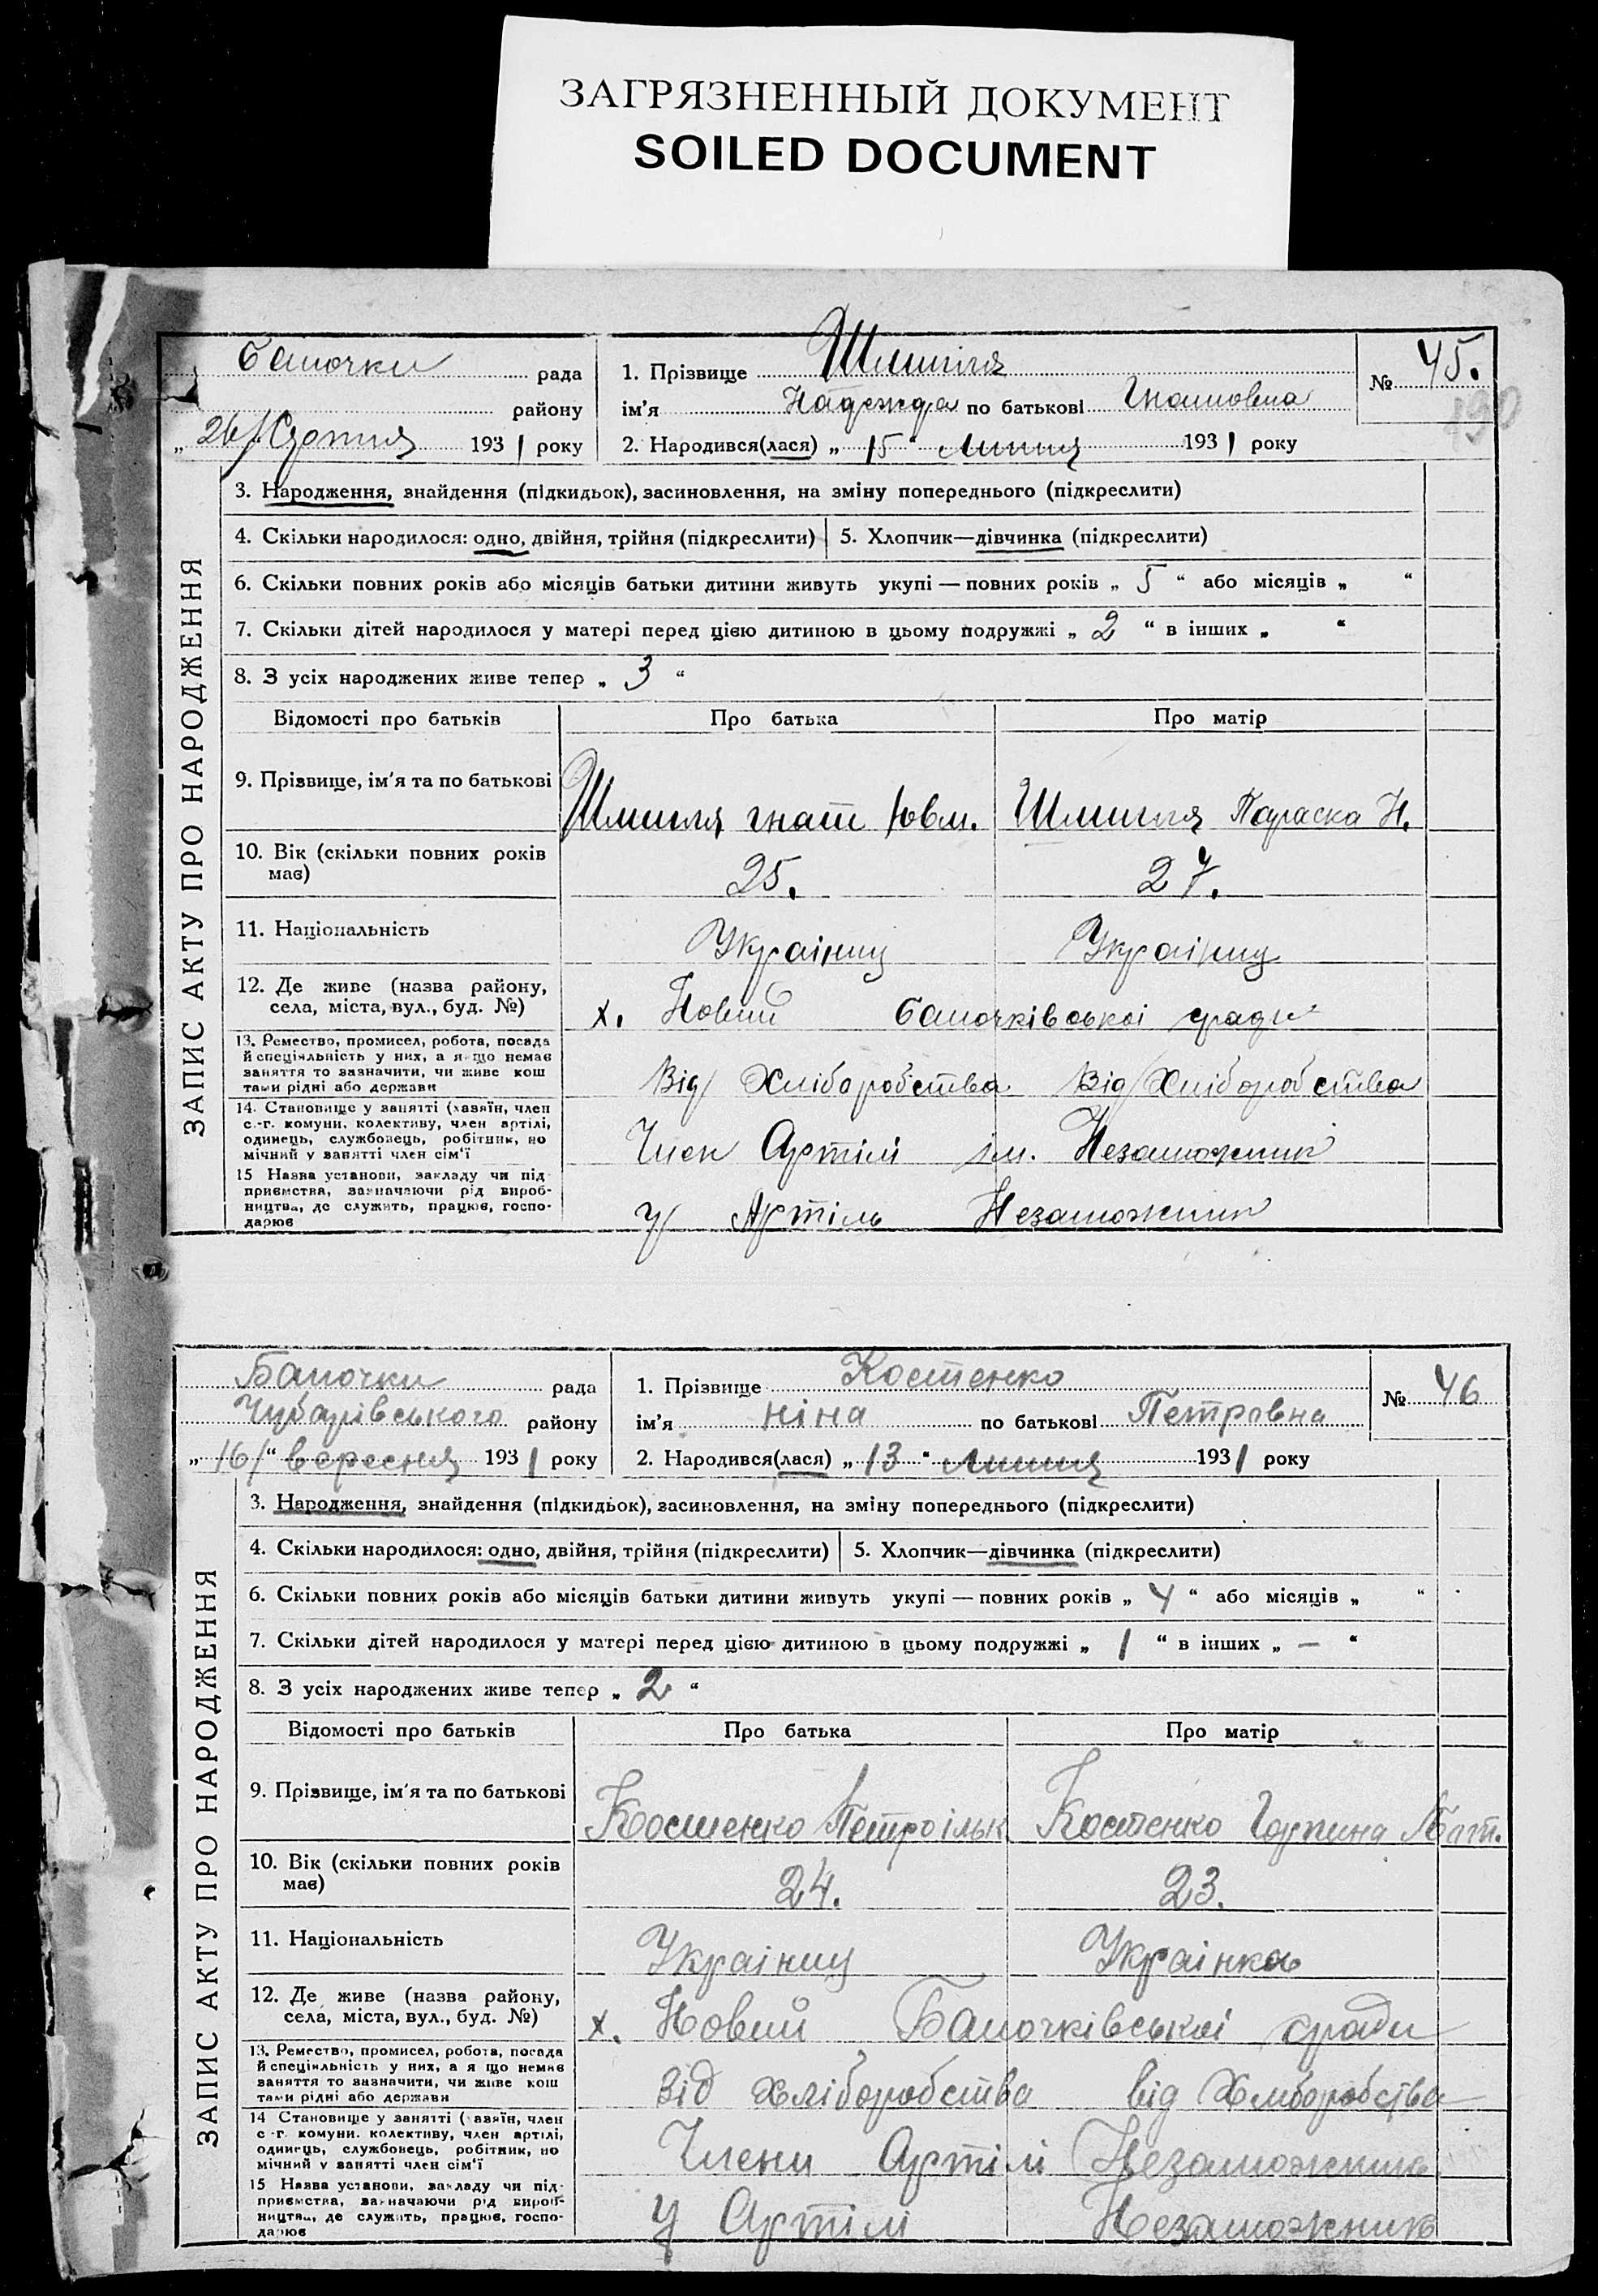 ЗАГРЯЗНЕННЫЙ ДОКУМЕНТ
SOILED DOCUMENT
Баночки рада
району
„26/Серпня 1931 року
1. Прізвище
ім'я Надежда по батькові Гнатовна
2. Народився(лася) „15“ Липня 1931 року
№ 45.
190
ЗАПИС АКТУ ПРО НАРОДЖЕННЯ
3. Народження, знайдення (підкидьок), засиновлення, на зміну попереднього (підкреслити)
4. Скільки народилося: одно, двійня, трійня (підкреслити) 5. Хлопчик—дівчинка (підкреслити)
6. Скільки повних років або місяців батьки дитини живуть укупі — повних років „ 5 “ або місяців „ “
7. Скільки дітей народилося у матері перед цією дитиною в цьому подружжі „ 2 “ в інших „ “
8. З усіх народжених живе тепер „ 3 “
Відомості про батьків Про батька Про матір
9. Прізвище, ім'я та по батькові гнат Параска Н.
10. Вік (скільки повних років має) 25. 27.
11. Національність Україниц Україниц
12. Де живе (назва району, села, міста, вул., буд. №) х. Новий Баночківської ради
13. Ремество, промисел, робота, посада й спеціяльність у них, а якщо немає заняття то зазначити, чи живе кош тами рідні або держави Від/ Хліборобства Від/Хліборобства
14. Становище у занятті (хазяїн, член с.-г. комуни, колективу, член артілі, одинець, службовець, робітник, по мічний у занятті член сім'ї Член Артілі ім. Незаможник
15 Назва установи, закладу чи під- приємства, зазначаючи рід вироб- ництва, де служить, працює, госпо- дарює у/ Артіль Незаможник
Баночки рада
Чубарівського району
„16/“ вересня 1931 року
1. Прізвище Костенко
ім'я Ніна по батькові Петровна
2. Народився(лася) „13“ Липня 1931 року
№ 46
ЗАПИС АКТУ ПРО НАРОДЖЕННЯ
3. Народження, знайдення (підкидьок), засиновлення, на зміну попереднього (підкреслити)
4. Скільки народилося: одно, двійня, трійня (підкреслити) 5. Хлопчик—дівчинка (підкреслити)
6. Скільки повних років або місяців батьки дитини живуть укупі — повних років „ 4 “ або місяців „ “
7. Скільки дітей народилося у матері перед цією дитиною в цьому подружжі „ 1 “ в інших „ — “
8. З усіх народжених живе тепер „ 2 “
Відомості про батьків Про батька Про матір
9. Прізвище, ім'я та по батькові Костенко Петро ільк Костенко Горпина
10. Вік (скільки повних років має) 24. 23.
11. Національність Україниц Українка
12. Де живе (назва району, села, міста, вул., буд. №) х. Новий Баночківської ради
13. Ремество, промисел, робота, посада й спеціяльність у них, а я що немає заняття то зазначити, чи живе кош тами рідні або держави Від хліборобства від Хліборобства
14 Становище у занятті ( азяїн, член с -г. комуни. колективу, член артілі, одинець, службовець, робітник, по мічний у занятті член сім'ї Члени Артілі Незаможник
15 Назва установи, закладу чи під- приємства, зазначаючи рід вироб- ництва, де служить, працює, госпо- дарює У Артілі Незаможник